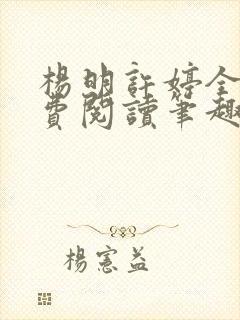 楊明許婷全
費閱讀筆趣
楊憲益